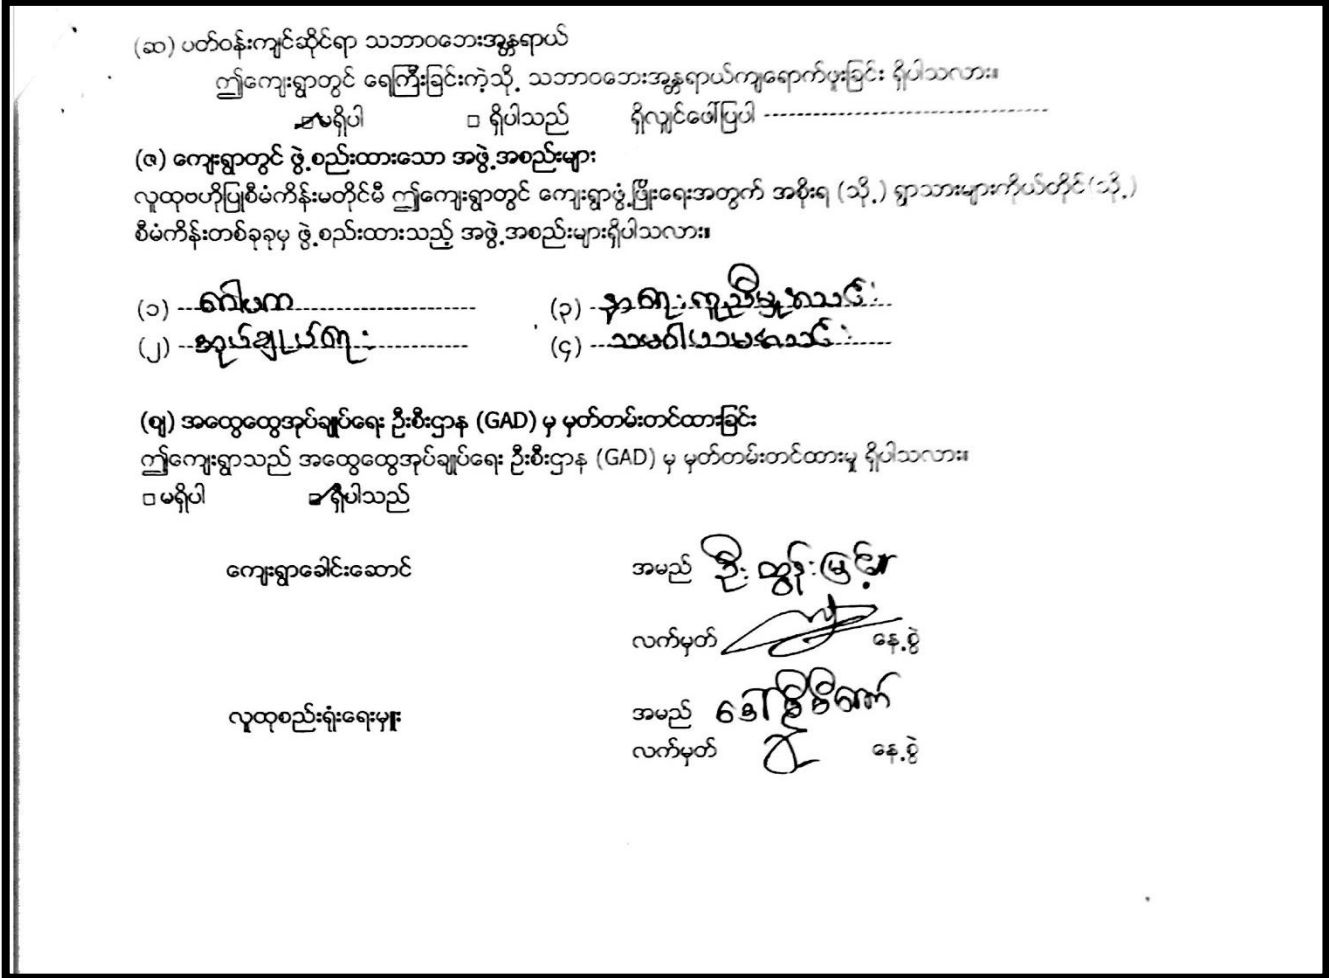 (ဆ) ပတ်ဝန်းကျင်ဆိုင်ရာ သဘာဝဘေးအန္တရာယ်
ဤကျေးရွာတွင် ရေကြီးခြင်းကဲ့သို့ သဘာဝဘေးအန္တရာယ်ကျရောက်ဖူးခြင်း ရှိပါသလား။
မရှိပါ □ ရှိပါသည် ရှိလျှင်ဖေါ်ပြပါ ---------------------------------
(ဇ) ကျေးရွာတွင် ဖွဲ့စည်းထားသော အဖွဲ့အစည်းများ
လူထုဗဟိုပြုစီမံကိန်းမတိုင်မီ ဤကျေးရွာတွင် ကျေးရွာဖွံ့ဖြိုးရေးအတွက် အစိုးရ (သို့) ရွာသားများကိုယ်တိုင် (သို့)
စီမံကိန်းတစ်ခုခုမှ ဖွဲ့စည်းထားသည့် အဖွဲ့အစည်းများရှိပါသလား။
(၁) (၃) နာရေးကူညီမှုအသင်း
(၂) အုပ်ချုပ်ရေး (၄) သမဝါယမအသင်း
(ဈ) အထွေထွေအုပ်ချုပ်ရေး ဦးစီးဌာန (GAD) မှ မှတ်တမ်းတင်ထားခြင်း
ဤကျေးရွာသည် အထွေထွေအုပ်ချုပ်ရေး ဦးစီးဌာန (GAD) မှ မှတ်တမ်းတင်ထားမှု ရှိပါသလား။
□ မရှိပါ ရှိပါသည်
ကျေးရွာခေါင်းဆောင် အမည် ဦးထွန်းမြင့်
လက်မှတ် နေ့စွဲ
လူထုစည်းရုံးရေးမှူး အမည် ဒေါ်
လက်မှတ် နေ့စွဲ